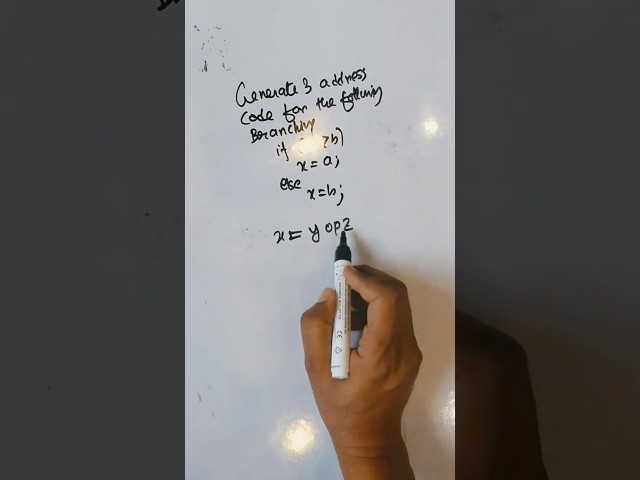 Generate 3 address
code for the following
Branching
if ( >b)
x=a;
else
x=b;
x= y op z